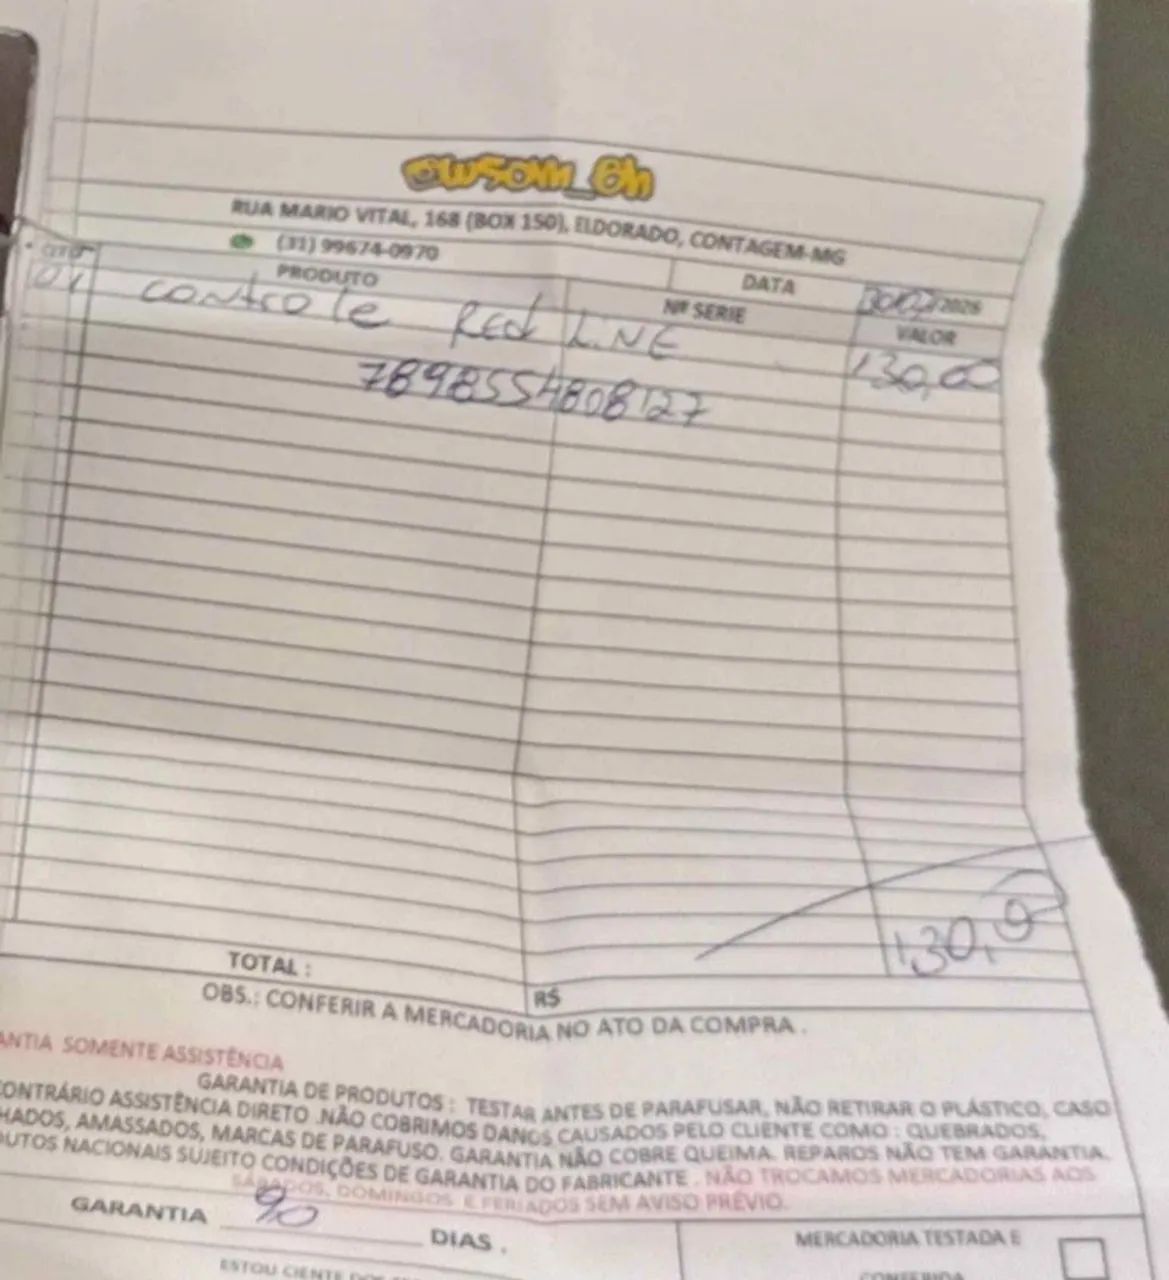 @wsom_bh
RUA MARIO VITAL, 168 (BOX 150), ELDORADO, CONTAGEM-MG
(31) 99674-0970
DATA
/2026
PRODUTO
Nº SERIE
VALOR
01 controle Red LINE 130,00
7898554808127
130,0
TOTAL :
R$
OBS.: CONFERIR A MERCADORIA NO ATO DA COMPRA .
ANTIA SOMENTE ASSISTÊNCIA
GARANTIA DE PRODUTOS : TESTAR ANTES DE PARAFUSAR, NÃO RETIRAR O PLÁSTICO, CASO
CONTRÁRIO ASSISTÊNCIA DIRETO .NÃO COBRIMOS DANOS CAUSADOS PELO CLIENTE COMO : QUEBRADOS,
HADOS, AMASSADOS, MARCAS DE PARAFUSO. GARANTIA NÃO COBRE QUEIMA. REPAROS NÃO TEM GARANTIA.
DUTOS NACIONAIS SUJEITO CONDIÇÕES DE GARANTIA DO FABRICANTE . NÃO TROCAMOS MERCADORIAS AOS
SÁBADOS, DOMINGOS E FERIADOS SEM AVISO PRÉVIO.
GARANTIA 90 DIAS .
MERCADORIA TESTADA E
CONFERIDA
ESTOU CIENTE DOS